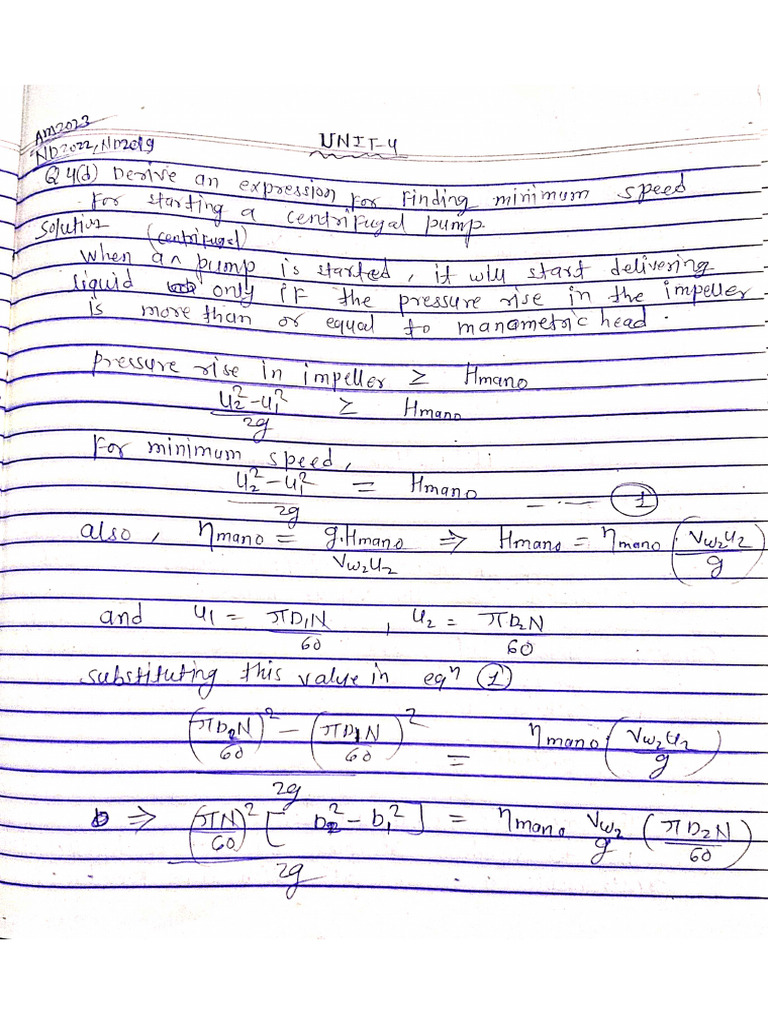 AM2023
ND2022, ND2019
UNIT-4
Q4(d) Derive an expression for finding minimum speed
for starting a centrifugal pump.
Solution
(centrifugal)
when an pump is started, it will start delivering
liquid only if the pressure rise in the impeller
is more than or equal to manometric head.
pressure rise in impeller ≥ Hmano
(u₂² - u₁²)/2g ≥ Hmano
For minimum speed,
(u₂² - u₁²)/2g = Hmano -- - -- ①
also, ηmano = g.Hmano/Vw₂u₂ ⇒ Hmano = ηmano.(Vw₂u₂/g)
and u₁ = πD₁N/60, u₂ = πD₂N/60
substituting this value in eqⁿ ①
((πD₂N/60)² - (πD₁N/60)²)/2g = ηmano.(Vw₂u₂/g)
⇒ (πN/60)² [D₂² - D₁²]/2g = ηmano Vw₂/g (πD₂N/60)